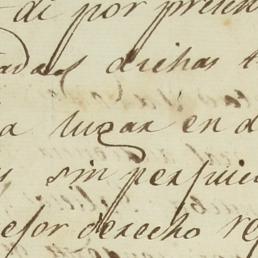 di por presen
adas dichas t
a lugar en d
s sin perjuic
esor derecho re